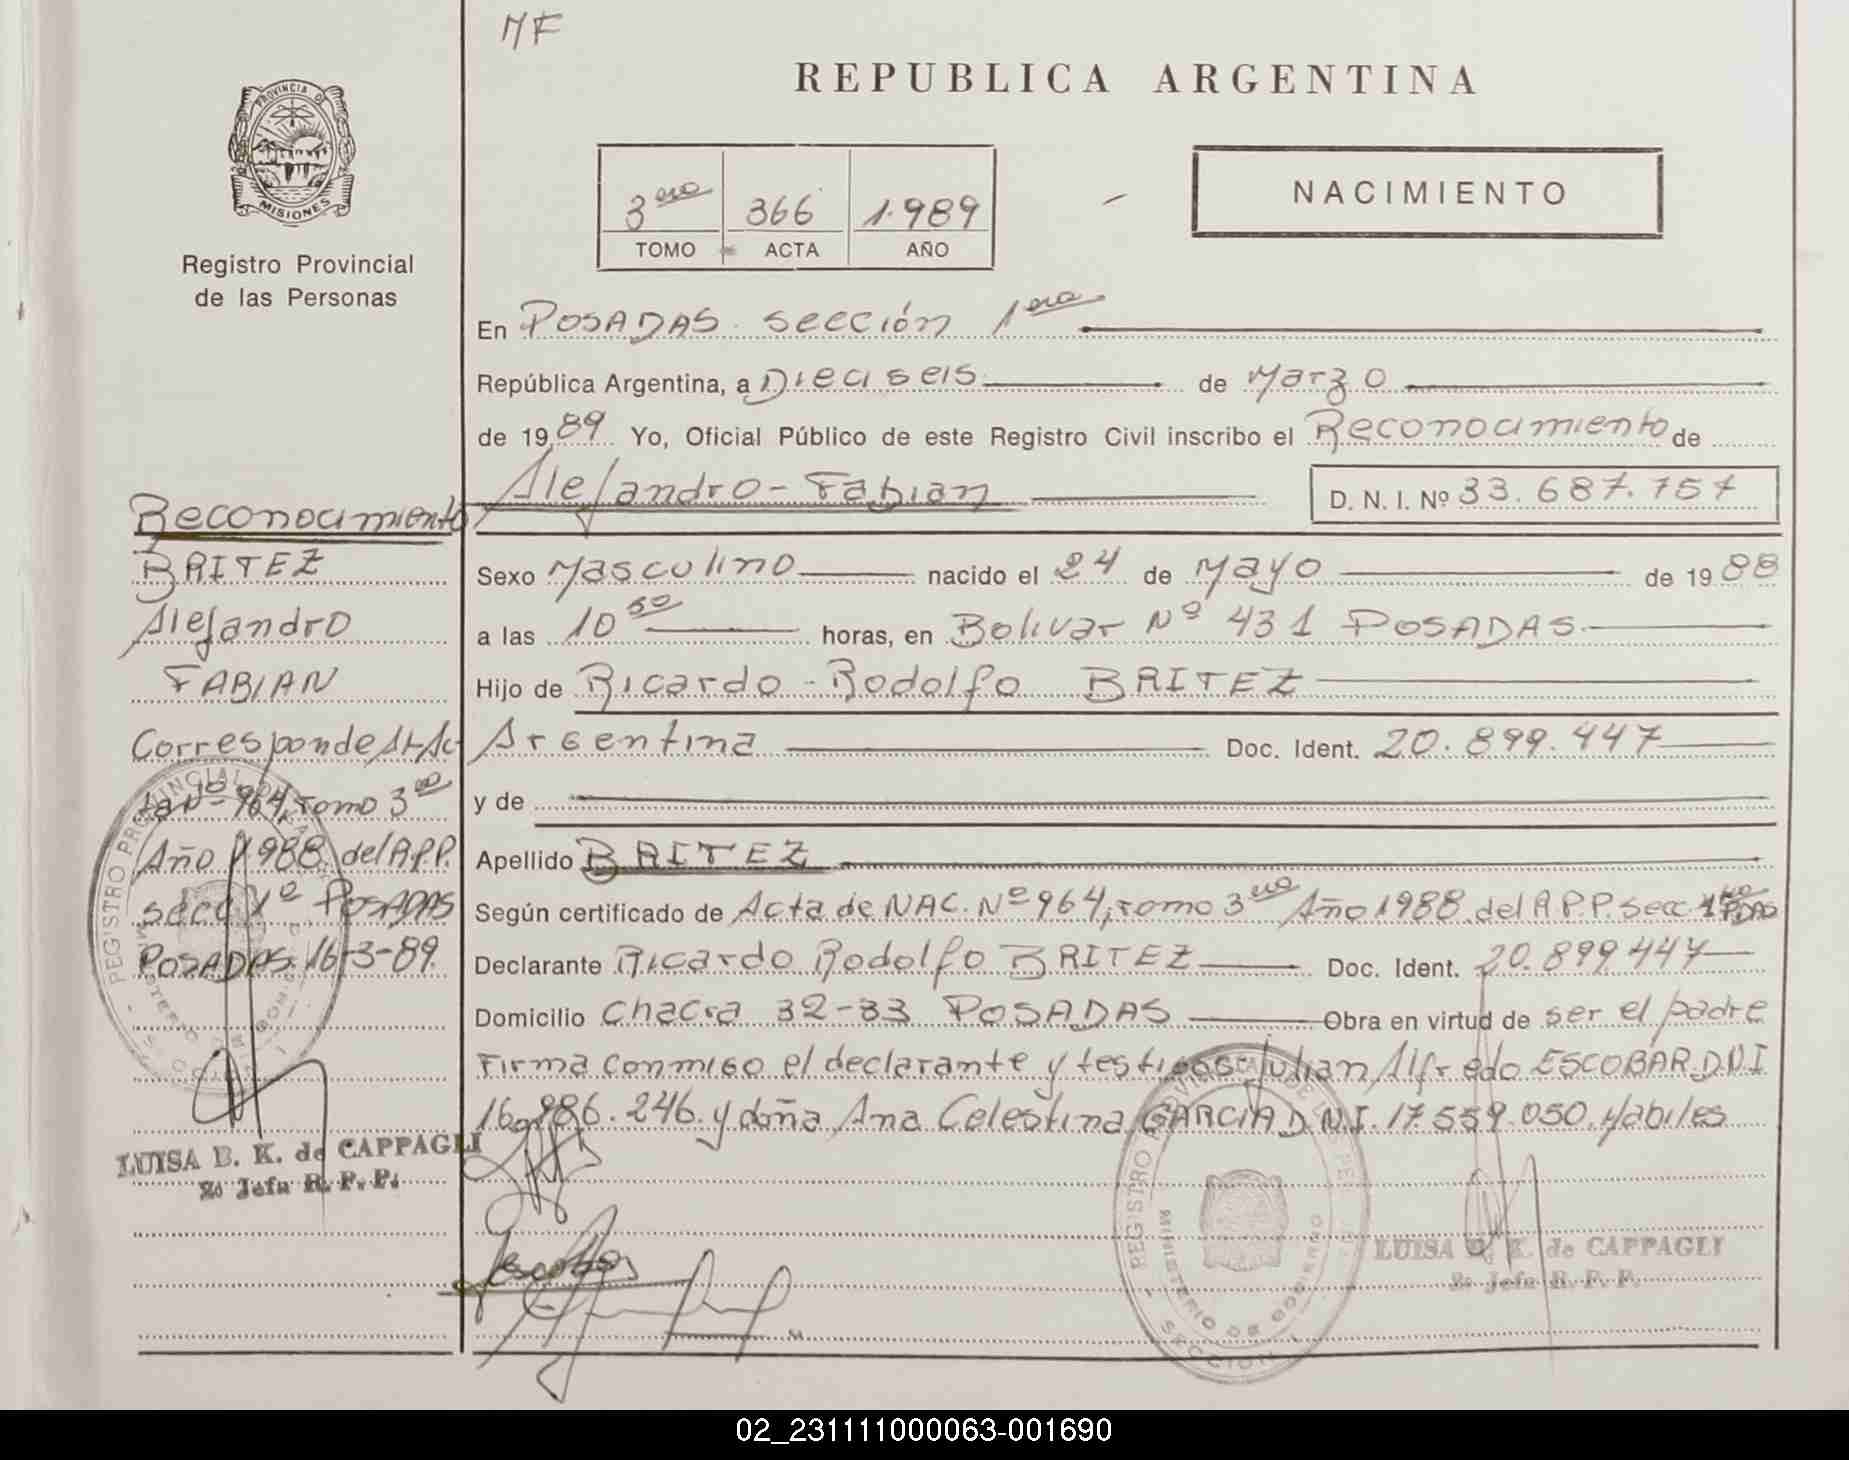 MF
REPUBLICA ARGENTINA
PROVINCIA DE
MISIONES
Registro Provincial
de las Personas
3era 366 1.989
TOMO ACTA AÑO
NACIMIENTO
En POSADAS. sección 1era
República Argentina, a Dieciseis de Marzo
de 1989 Yo, Oficial Público de este Registro Civil inscribo el Reconocimiento de
Alejandro-Fabian D. N. I. Nº 33.687.757
Sexo Masculino nacido el 24 de Mayo de 1988
a las 10 50 horas, en Bolivar Nº 431 POSADAS.
Hijo de Ricardo-Rodolfo BRITEZ
Argentina Doc. Ident. 20.899.447
y de
Apellido BRITEZ
Según certificado de Acta de NAC. Nº 964, Tomo 3ero Año 1988 del R.P.P. Secc. 1era PDAS
Declarante Ricardo Rodolfo BRITEZ Doc. Ident. 20.899.447
Domicilio Chacra 32-33 POSADAS Obra en virtud de ser el padre
Firma conmigo el declarante y testigos Julian Alfredo ESCOBAR D.N.I
16.986.246. y doña Ana Celestina GARCIA D.N.I. 17.559.050. Habiles
Reconocimiento
BRITEZ
Alejandro
FABIAN
Corresponde Al Ac
ta Nº 964, Tomo 3ero
Año 1988. del R.P.P.
secc 1º POSADAS
POSADAS. 16-3-89.
LUISA B. K. de CAPPAGLI
2º Jefa R. P. P.
REGISTRO PROVINCIAL DE LAS PER
MINISTERIO DE GOBIERNO
SECCION 1
LUISA B. K. de CAPPAGLI
2º Jefa R. P. P.
02_231111000063-001690